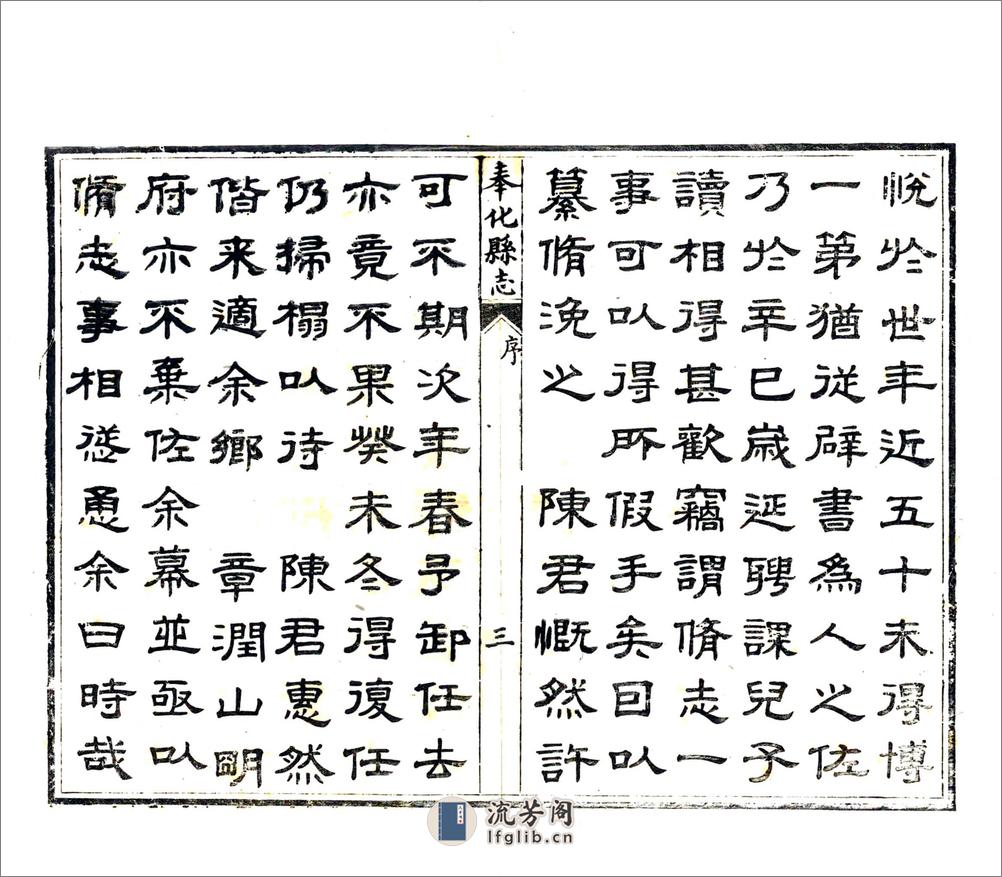 悅於世年近五十未得博
一第猶從辟書為人之佐
乃於辛巳歲延聘課兒子
讀相得甚歡竊謂脩志一
事可以得所假手矣囙以
纂脩浼之 陳君慨然許
奉化縣志 序 三
可不期次年春予卸任去
亦竟不果癸未冬得復任
仍掃榻以待 陳君惠然
偕来適余鄉 章潤山明
府亦不棄佐余幕並亟以
脩志事相慫恿余曰時哉
流芳阁
lfglib.cn